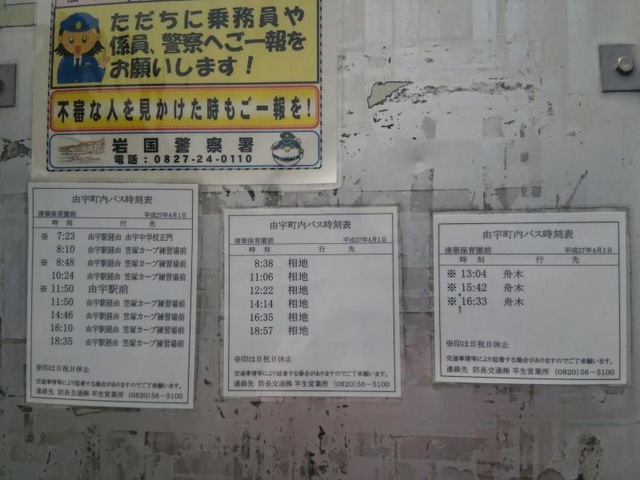 ただちに乗務員や
係員、警察へご一報を
お願いします!
不審な人を見かけた時もご一報を!
岩国警察署
電話:0827-24-0110
由宇町内バス時刻表
清華保育園前 平成27年4月1日
時刻 行先
※ 7:23 由宇駅経由 由宇中学校正門
8:10 由宇駅経由 笠塚カープ練習場前
※ 8:48 由宇駅経由 笠塚カープ練習場前
10:24 由宇駅経由 笠塚カープ練習場前
※ 11:50 由宇駅前
11:50 由宇駅経由 笠塚カープ練習場前
14:46 由宇駅経由 笠塚カープ練習場前
16:10 由宇駅経由 笠塚カープ練習場前
18:35 由宇駅経由 笠塚カープ練習場前
※印は日祝日休止
交通事情等により延着する場合がありますのでご了承願います。
連絡先 防長交通㈱ 平生営業所 (0820)56-5100
由宇町内バス時刻表
清華保育園前 平成27年4月1日
時刻 行先
8:38 相地
11:06 相地
12:22 相地
14:14 相地
16:35 相地
18:57 相地
※印は日祝日休止
交通事情等により延着する場合がありますのでご了承願います。
連絡先 防長交通㈱ 平生営業所 (0820)56-5100
由宇町内バス時刻表
清華保育園前 平成27年4月1日
時刻 行先
※ 13:04 舟木
※ 15:42 舟木
※ 16:33 舟木
※印は日祝日休止
交通事情等により延着する場合がありますのでご了承願います。
連絡先 防長交通㈱ 平生営業所 (0820)56-5100